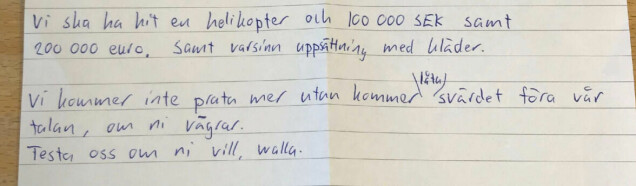 Vi ska ha hit en helikopter och 100 000 SEK samt
200 000 euro. Samt varsinn uppsättning med kläder.
Vi kommer inte prata mer utan kommer (låta) svärdet föra vår
talan, om ni vägrar.
Testa oss om ni vill, walla.